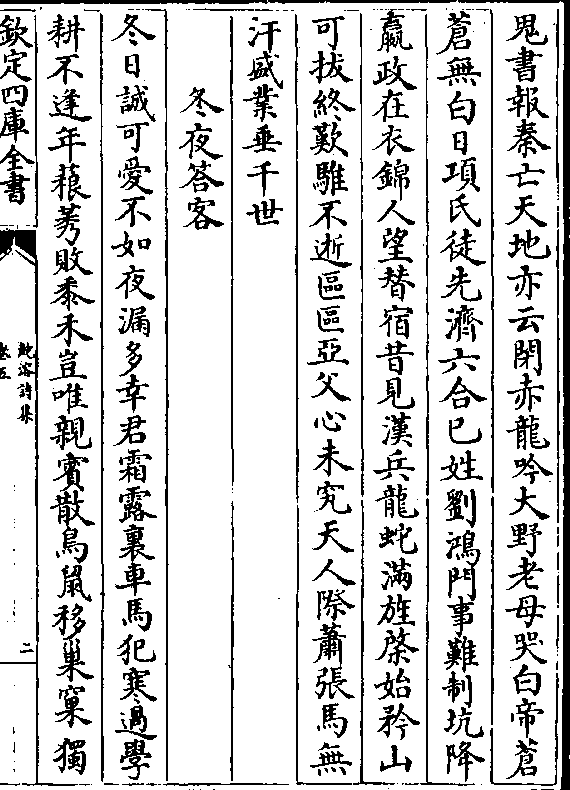 鬼書報秦亡天地亦云閉赤龍吟大野老母哭白帝蒼
蒼無白日項氏徒先濟六合已姓劉鴻門事難制坑降
嬴政在衣錦人望替宿昔見漢兵龍蛇滿旌棨始矜山
可拔終歎騅不逝區區亞父心未究天人際蕭張馬無
汗盛業垂千世
冬夜答客
冬日誠可愛不如夜漏多幸君霜露裏車馬犯寒過學
耕不逢年稂莠敗黍禾豈唯親賓散鳥鼠移巢窠獨
欽定四庫全書
鮑溶詩集
卷五
二